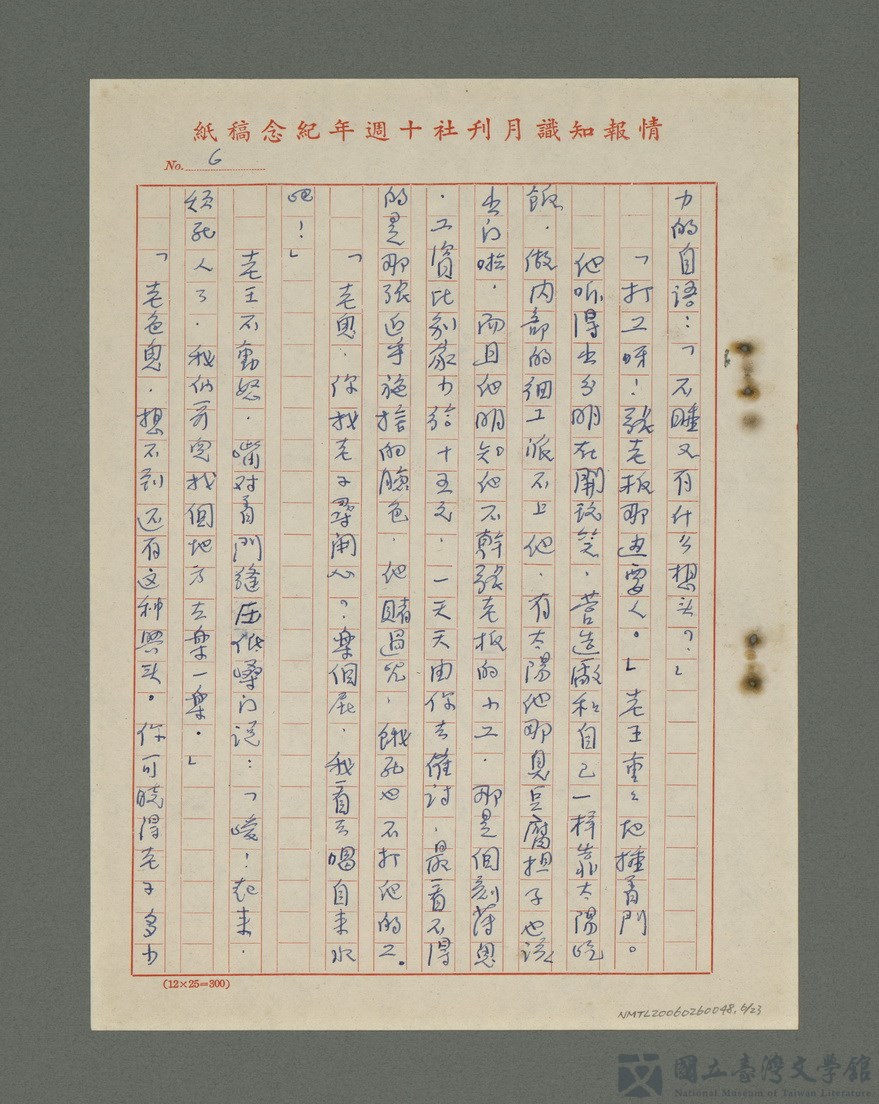 情報知識月刊社十週年紀念稿紙
No. 6
力的自語：「不睡又有什么想头？」
「打工呀！張老板那边要人。」老王重々地捶着門。
他听得出分明在開玩笑，营造廠和自己一样靠太陽吃
飯，做内部的细工派不上他，有太陽他那臭豆腐担子也該
出门啦，而且他明知他不幹張老板的小工，那是個刻薄鬼
，工資比别家少给十五元，一天天由你去催讨，最看不得
的是那張近乎施捨的臉色，他賭過咒，餓死也不打他的工。
「老鬼，你找老子尋開心？樂個屁，我看去喝自来水
吧！」
老王不動怒，嘴对着門縫压低嗓门说：「嗳！起来，
烦死人了，我们哥兒找個地方去樂一樂。」
「老色鬼，想不到还有这种興头。你可晓得老子多少
(12×25=300)
NMTL20060260048, 6/23
國立臺灣文學館
National Museum of Taiwan Literature